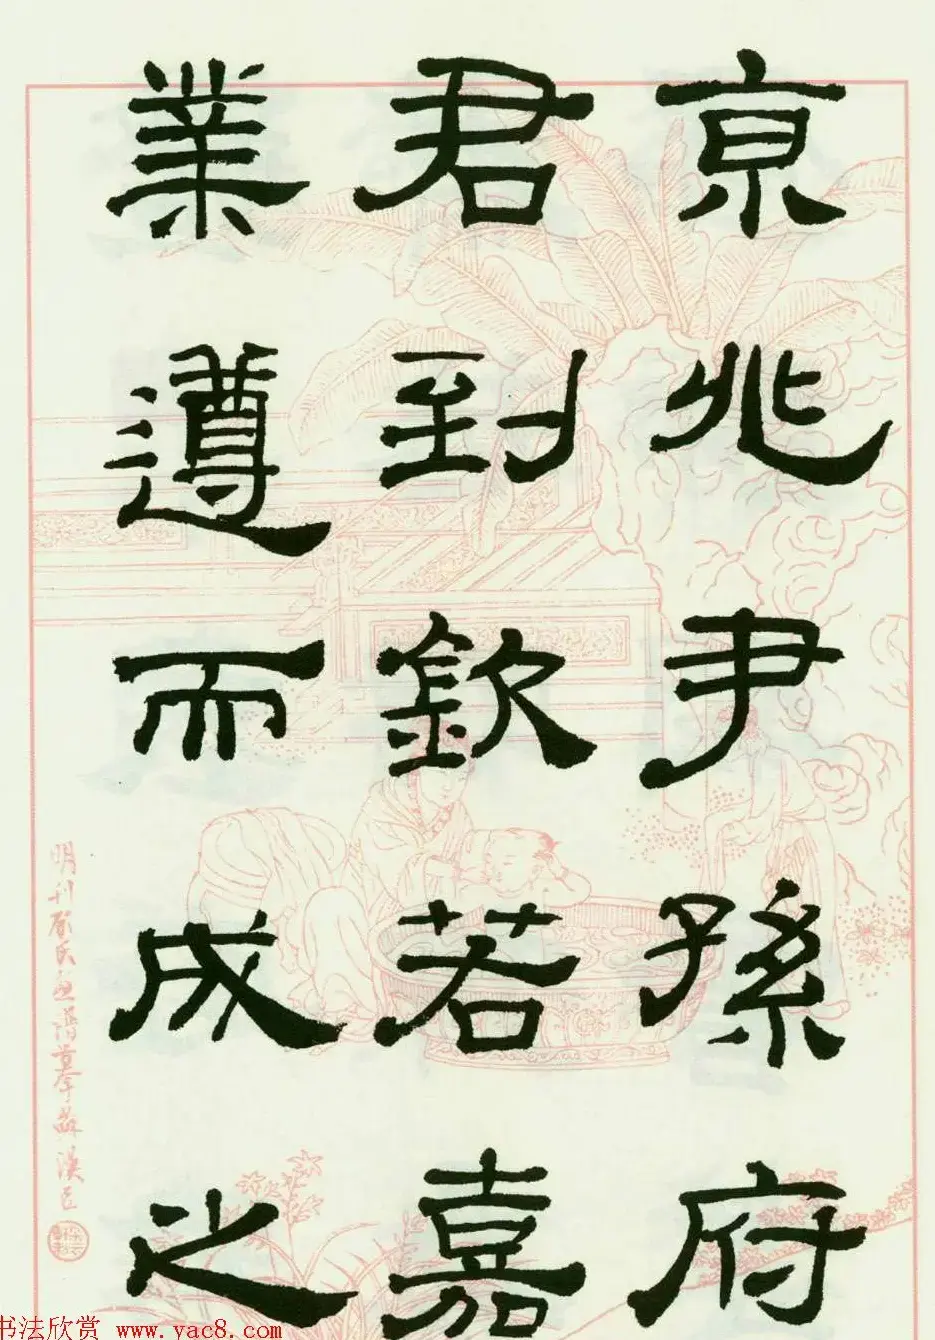 京兆尹孫府
君到欽若嘉
業遵而成之
明刊顧氏畫譜摹蘇漢臣
书法欣赏 www.yac8.com